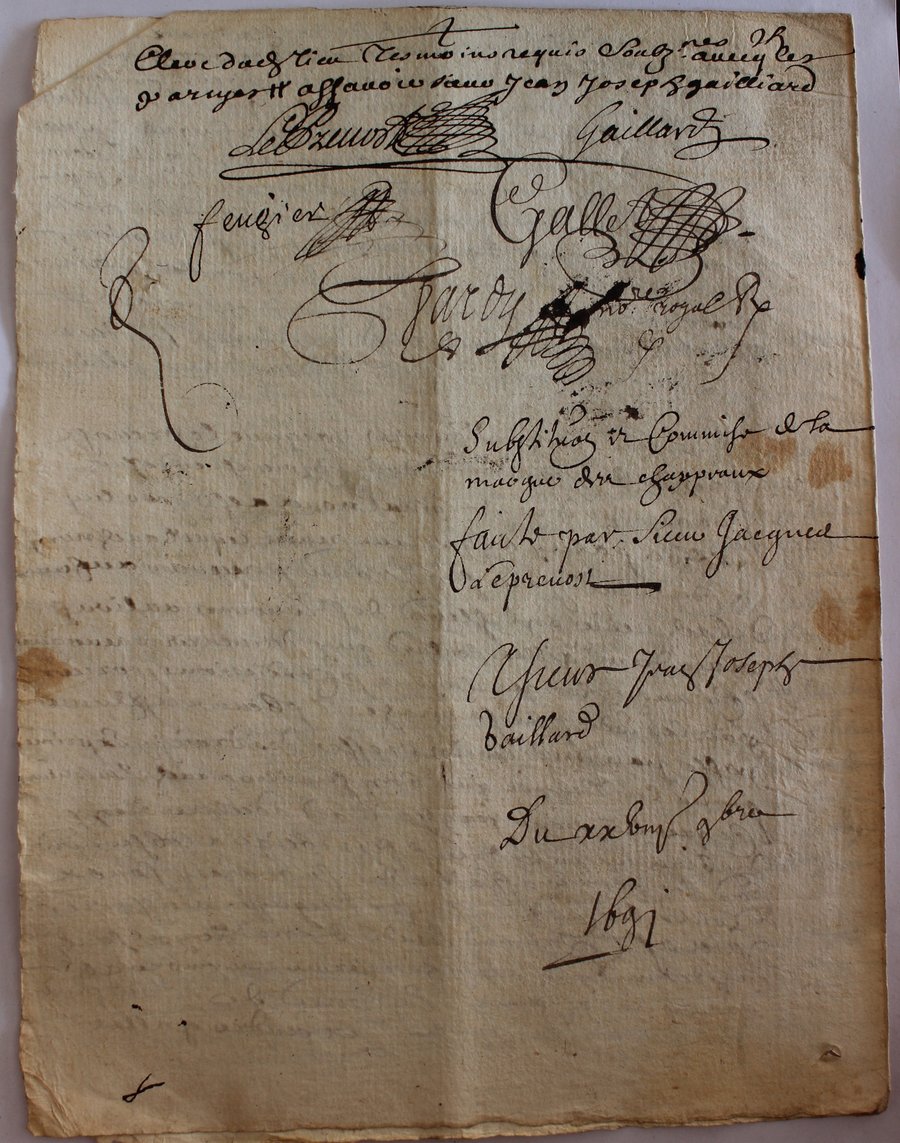 Clerc dud lieu Tesmoins requis Soubz.nes avecq les
partyes assavoir Jean Joseph gailliard
LePrevost
Gaillard
fengier
Gallet
hardy no.re royal
Substituon et Commise de la
marque des chappeaux
faitte par Sieur Jacques
Leprevost
A Sieur Jean Joseph
Gaillard
Du xxviij 9bre
1691